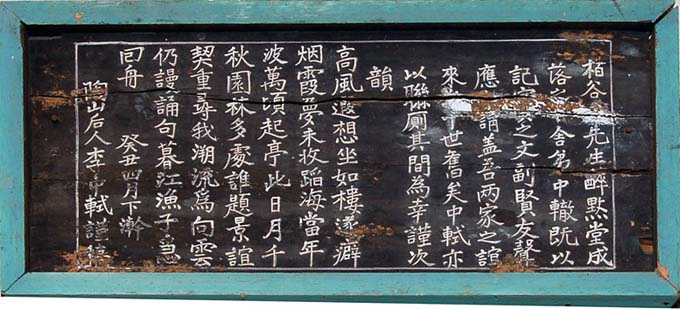 栢谷先生醉默堂成
落之舍弟中轍旣以
記之文副賢友聲
應誦盖吾兩家之誼
來于世舊矣中軾亦
以聯厠其間為幸謹次
韻
高風遐想坐如樓遂癖
烟霞夢未收蹈海當年
波萬頃起亭此日月千
秋園林多處誰題景誼
契重尋我溯流爲向雲
仍謾誦句暮江漁子急
回舟
癸丑四月下澣
陶山后人李中軾謹